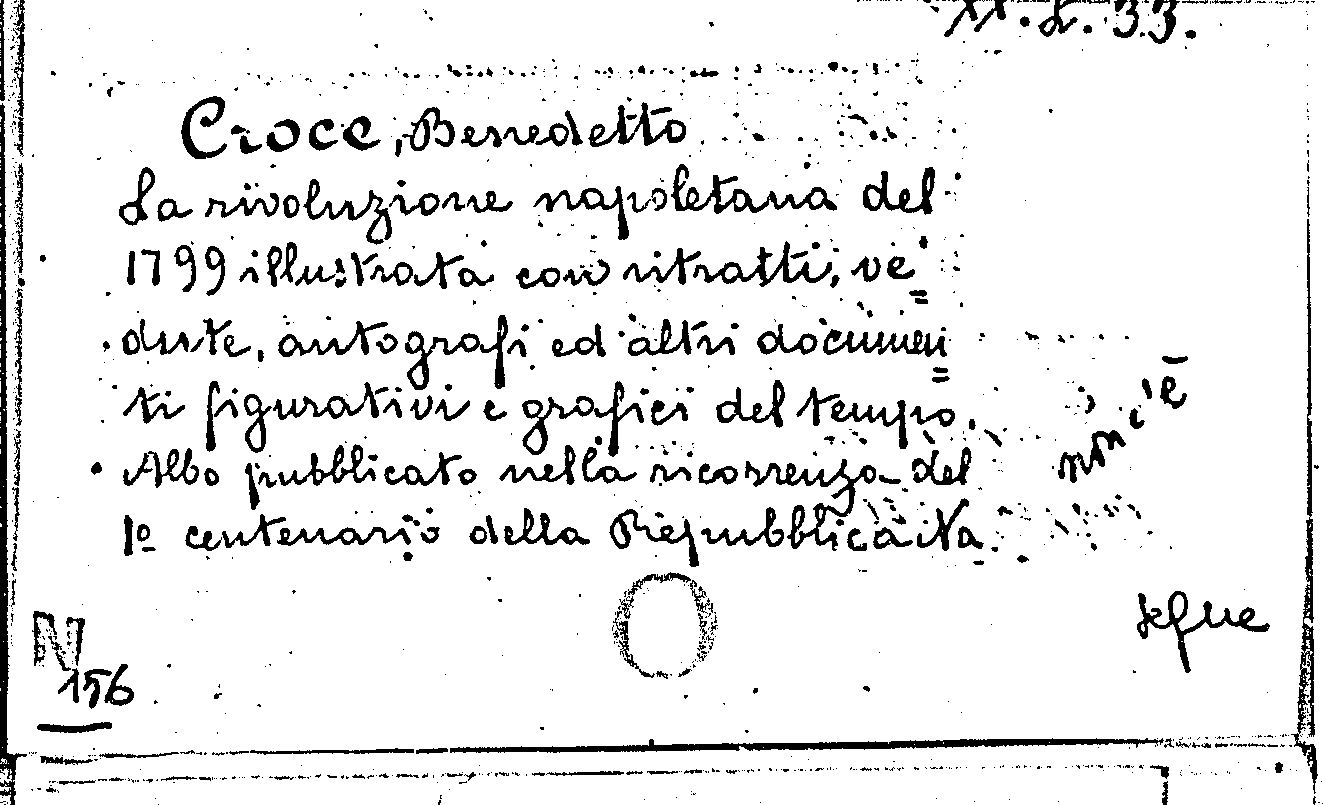 XX.L.33.
Croce, Benedetto
La rivoluzione napoletana del
1799 illustrata con ritratti, ve=
dute, autografi ed altri documen=
ti figurativi e grafici del tempo.
Albo pubblicato nella ricorrenza del
1º centenario della Repubblica Na
non c'è
segue
N
156